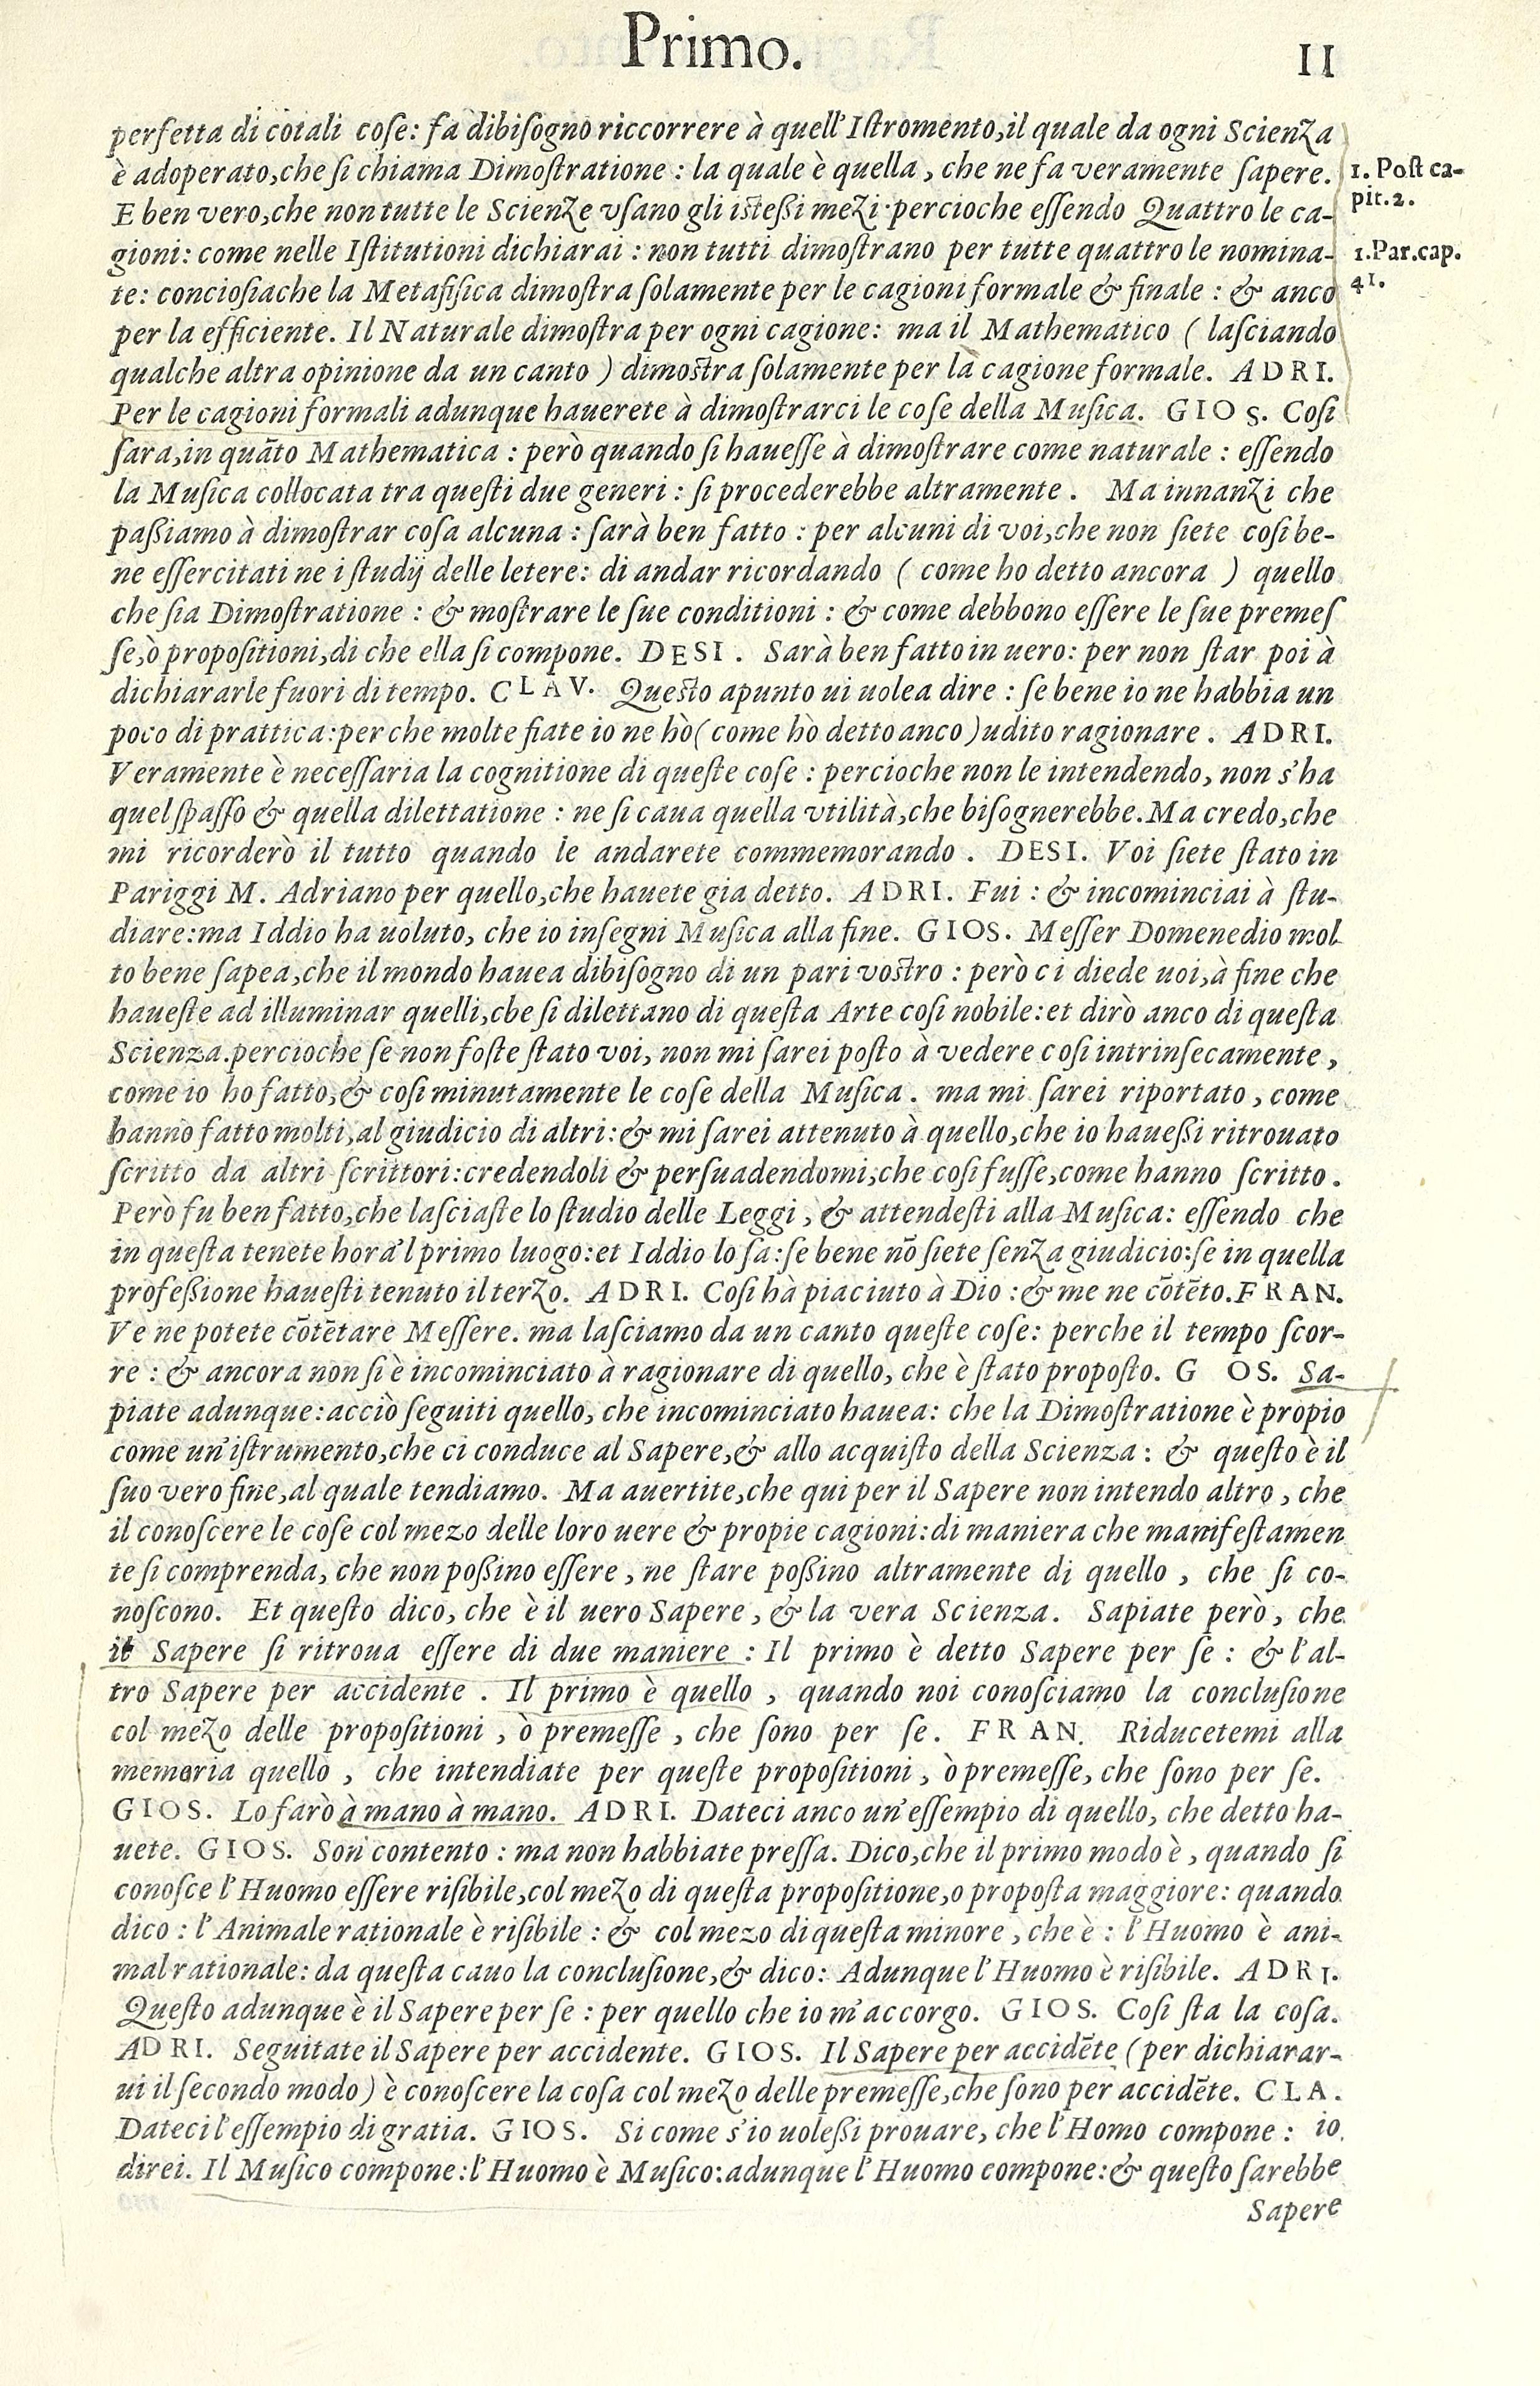 Primo.
11
perfetta di cotali cose: fa dibiſogno riccorrere à quell'Iſtromento,il quale da ogni Scienza
è adoperato,che ſi chiama Dimoſtratione : la quale è quella , che ne fa veramente ſapere.
1. Poſt ca-
pit.2.
E ben vero,che non tutte le Scienze vſano gli iſteßi mezi·percioche eſſendo Quattro le ca-
gioni: come nelle Iſtitutioni dichiarai : non tutti dimoſtrano per tutte quattro le nomina-
1.Par.cap.
41.
te: concioſiache la Metafiſica dimoſtra ſolamente per le cagioni formale & finale : & anco
per la efficiente. Il Naturale dimoſtra per ogni cagione: ma il Mathematico ( laſciando
qualche altra opinione da un canto ) dimoſtra ſolamente per la cagione formale. ADRI.
Per le cagioni formali adunque hauerete à dimoſtrarci le coſe della Muſica. GIOS. Coſi
ſara,in quãto Mathematica : però quando ſi haueſſe à dimoſtrare come naturale : eſſendo
la Muſica collocata tra queſti due generi : ſi procederebbe altramente . Ma innanzi che
paßiamo à dimoſtrar coſa alcuna : ſarà ben fatto : per alcuni di voi,che non ſiete coſi be-
ne eſſercitati ne i ſtudij delle letere: di andar ricordando ( come ho detto ancora ) quello
che ſia Dimoſtratione : & moſtrare le ſue conditioni : & come debbono eſſere le ſue premeſ
ſe,ò propoſitioni,di che ella ſi compone. DESI . Sarà ben fatto in uero: per non ſtar poi à
dichiararle fuori di tempo. CLAV. Queſto apunto ui uolea dire : ſe bene io ne habbia un
poco di prattica:perche molte fiate io ne hò(come hò detto anco)udito ragionare . ADRI.
Veramente è neceſſaria la cognitione di queſte coſe : percioche non le intendendo, non s'ha
quel ſpaſſo & quella dilettatione : ne ſi caua quella vtilità,che biſognerebbe.Ma credo,che
mi ricorderò il tutto quando le andarete commemorando . DESI. Voi ſiete ſtato in
Pariggi M. Adriano per quello,che hauete gia detto. ADRI. Fui : & incominciai à ſtu-
diare:ma Iddio ha uoluto, che io inſegni Muſica alla fine. GIOS. Meſſer Domenedio mol
to bene ſapea,che il mondo hauea dibiſogno di un pari voſtro : però ci diede uoi,à fine che
haueſte ad illuminar quelli,che ſi dilettano di queſta Arte coſi nobile:et dirò anco di queſta
Scienza.percioche ſe non foſte ſtato voi, non mi ſarei poſto à vedere coſi intrinſecamente ,
come io ho fatto,& coſi minutamente le coſe della Muſica . ma mi ſarei riportato , come
hanno fatto molti,al giudicio di altri:& mi ſarei attenuto à quello,che io haueßi ritrouato
ſcritto da altri ſcrittori:credendoli & perſuadendomi,che coſi fuſſe,come hanno ſcritto .
Però fu ben fatto,che laſciaſte lo ſtudio delle Leggi , & attendeſti alla Muſica: eſſendo che
in queſta tenete hora'l primo luogo:et Iddio lo ſa:ſe bene nõ ſiete ſenza giudicio:ſe in quella
profeßione haueſti tenuto il terzo. ADRI. Coſi hà piaciuto à Dio :& me ne cõtẽto.FRAN.
Ve ne potete cõtẽtare Meſſere. ma laſciamo da un canto queſte coſe: perche il tempo ſcor-
re : & ancora non ſi è incominciato à ragionare di quello, che è ſtato propoſto. G OS. Sa-
piate adunque:acciò ſeguiti quello, che incominciato hauea: che la Dimoſtratione è propio
come un'iſtrumento,che ci conduce al Sapere,& allo acquiſto della Scienza : & queſto è il
ſuo vero fine,al quale tendiamo. Ma auertite,che qui per il Sapere non intendo altro , che
il conoſcere le coſe col mezo delle loro uere & propie cagioni:di maniera che manifeſtamen
te ſi comprenda, che non poßino eſſere , ne ſtare poßino altramente di quello , che ſi co-
noſcono. Et queſto dico, che è il uero Sapere , & la vera Scienza. Sapiate però, che
il Sapere ſi ritroua eſſere di due maniere : Il primo è detto Sapere per ſe : & l'al-
tro Sapere per accidente . Il primo è quello , quando noi conoſciamo la concluſione
col mezo delle propoſitioni , ò premeſſe , che ſono per ſe. FRAN. Riducetemi alla
memoria quello , che intendiate per queſte propoſitioni , ò premeſſe, che ſono per ſe.
GIOS. Lo farò à mano à mano. ADRI. Dateci anco un'eſſempio di quello, che detto ha-
uete. GIOS. Son contento : ma non habbiate preſſa. Dico,che il primo modo è , quando ſi
conoſce l'Huomo eſſere riſibile,col mezo di queſta propoſitione,o propoſta maggiore: quando
dico : l'Animale rationale è riſibile : & col mezo di queſta minore , che è : l'Huomo è ani-
mal rationale: da queſta cauo la concluſione,& dico: Adunque l'Huomo è riſibile. ADRI.
Queſto adunque è il Sapere per ſe : per quello che io m'accorgo. GIOS. Coſi ſta la coſa.
ADRI. Seguitate il Sapere per accidente. GIOS. Il Sapere per accidẽte (per dichiarar-
ui il ſecondo modo) è conoſcere la coſa col mezo delle premeſſe,che ſono per accidẽte. CLA.
Dateci l'eſſempio di gratia. GIOS. Si come s'io uoleßi prouare, che l'Homo compone : io
direi. Il Muſico compone:l'Huomo è Muſico:adunque l'Huomo compone:& queſto ſarebbe
Sapere